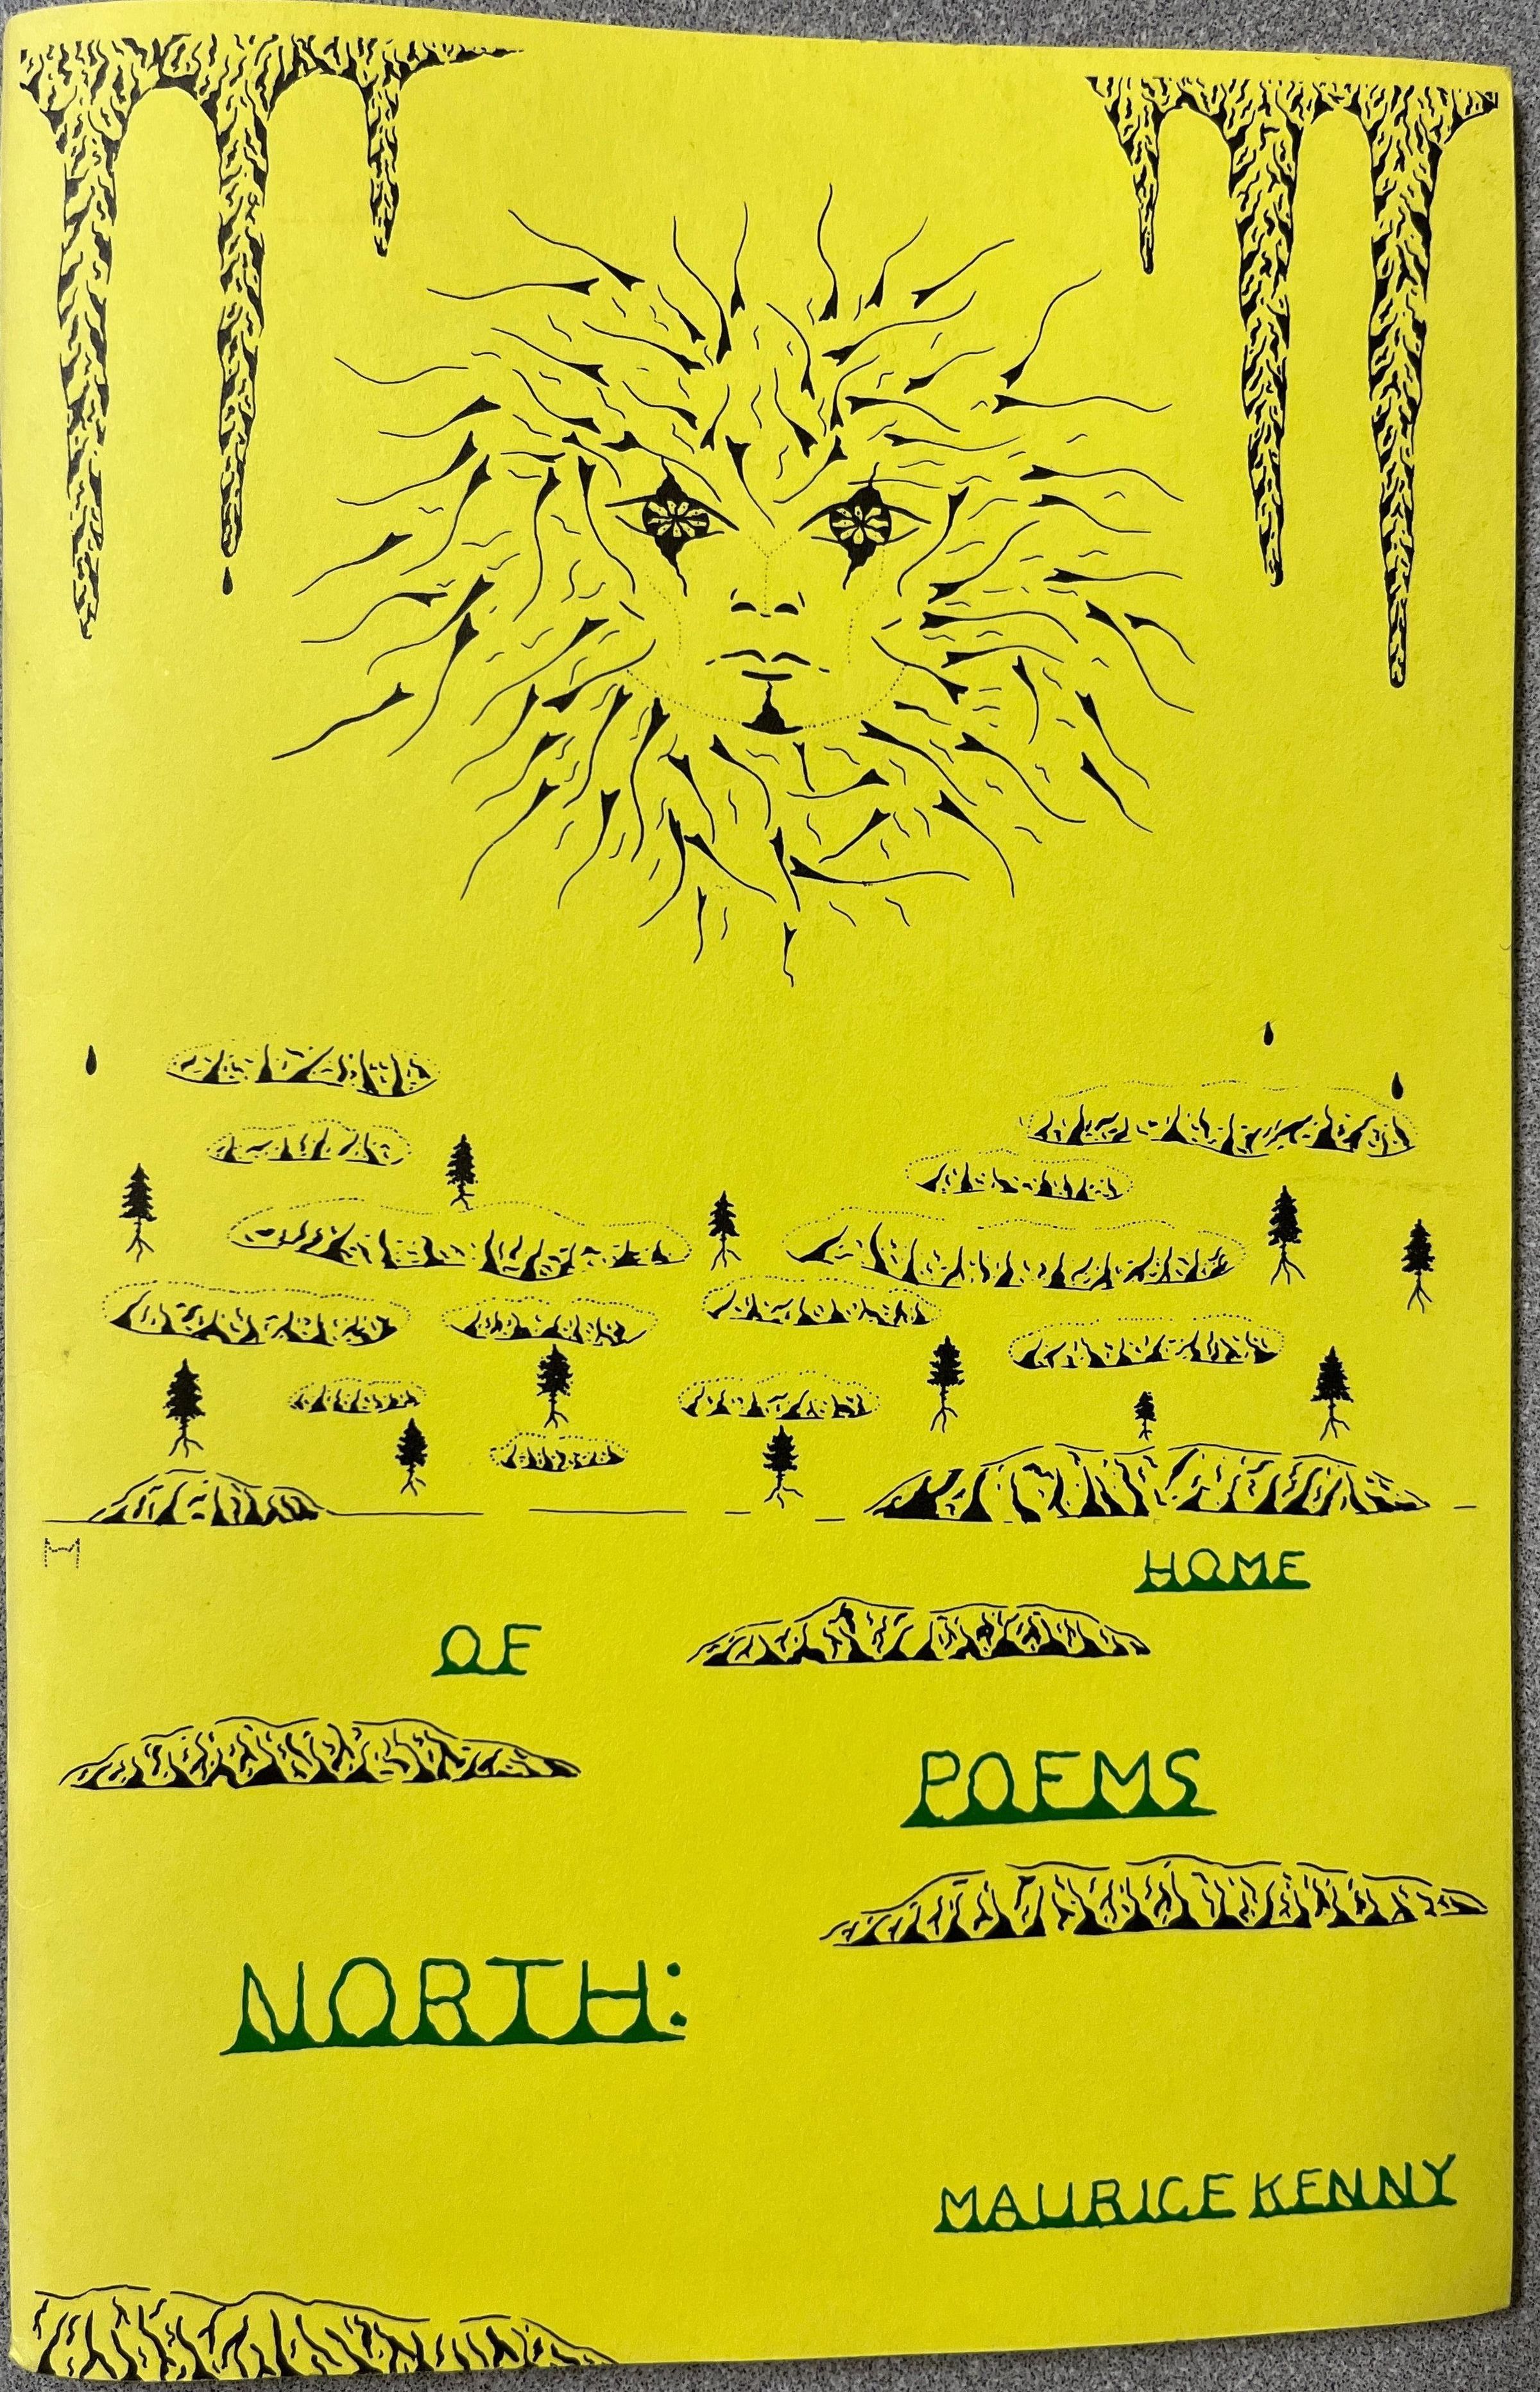 HOME
OF
POEMS
NORTH:
MAURICE KENNY